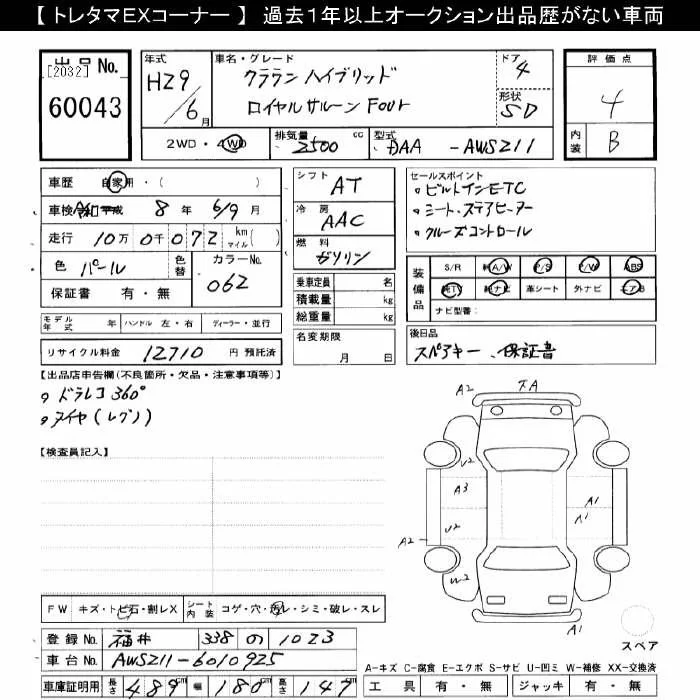 【トレタマEXコーナー】 過去1年以上オークション出品歴がない車両
出品 No.
[2032]
60043
年式
H29/6月
車名・グレード
クラウン ハイブリッド
ロイヤルサルーン Four
ドア
4
形状
SD
評価点
4
内装
B
2WD・4WD
排気量 2500 cc
型式 DAA-AWS211
車歴 自家用・( )
車検 令和 平成 8年 6/9月
走行 10万0千072 km マイル( )
色 パール
色替
カラーNo. 062
保証書 有・無
シフト AT
冷房 AAC
燃料 ガソリン
乗車定員 名
積載量 kg
総重量 kg
セールスポイント
。ビルトインETC
。シート・ステアヒーター
。クルーズコントロール
装備品
S/R 純A/W P/S P/W ABS
純TV 純ナビ 革シート 外ナビ エアB
ナビ型番:
モデル年式 年 ハンドル 左・右 ディーラー・並行
リサイクル料金 12710 円 預託済
名変期限
月 日
後日品
スペアキー、保証書
【出品店申告欄(不良箇所・欠品・注意事項等)】
。ドラレコ360°
。タイヤ(レグノ)
【検査員記入】
A2
A
U2
A3
A1
U2
A1
A2
W2
A1
スペア
FW キズ・トビ石・割レX
シート内装 コゲ・穴・汚レ・シミ・破レ・スレ
登録 No. 福井 338 の 1023
車台 No. AWS211-6010925
車庫証明用 長さ 489cm 幅 180cm 高さ 147
A-キズ C-腐食 E-エクボ S-サビ U-凹ミ W-補修 XX-交換済
工具 有・無 ジャッキ 有・無